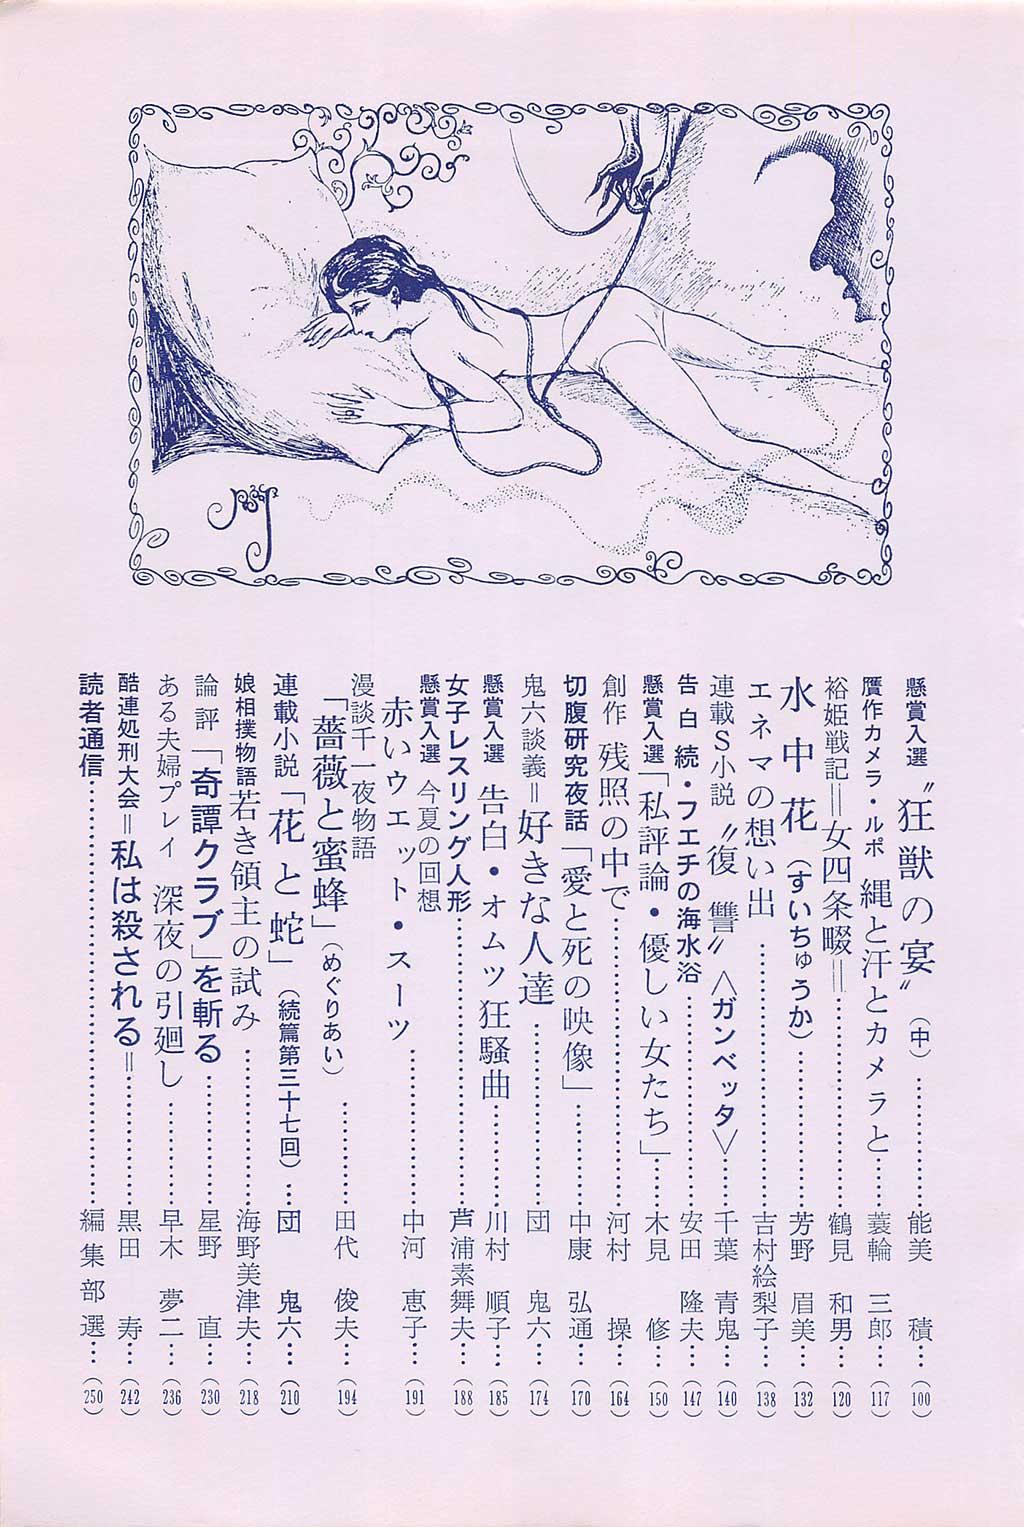 懸賞入選 〝狂獣の宴〟 (中)…………能美 積…(100)
贋作カメラ・ルポ 縄と汗とカメラと……蓑輪 三郎…(117)
裕姫戦記=女四条畷=……………鶴見 和男…(120)
水中花(すいちゅうか)……………芳野 眉美…(132)
エネマの想い出……………吉村絵梨子…(138)
連載S小説 〝復讐〟<ガンベッタ>……千葉 青鬼…(140)
告白 続・フエチの海水浴……………安田 隆夫…(147)
懸賞入選「私評論・優しい女たち」……木見 修…(150)
創作 残照の中で……………河村 操…(164)
切腹研究夜話「愛と死の映像」…………中康 弘通…(170)
鬼六談義=好きな人達……………団 鬼六…(174)
懸賞入選 告白・オムツ狂騒曲…………川村 順子…(185)
女子レスリング人形……………芦浦素舞夫…(188)
懸賞入選 今夏の回想
赤いウエット・スーツ……………中河 恵子…(191)
漫談千一夜物語
「薔薇と蜜蜂」(めぐりあい)…………田代 俊夫…(194)
連載小説「花と蛇」(続篇第三十七回)…団 鬼六…(210)
娘相撲物語 若き領主の試み……………海野美津夫…(218)
論評「奇譚クラブ」を斬る……………星野 直…(230)
ある夫婦プレイ 深夜の引廻し…………早木 夢二…(236)
酷連処刑大会=私は殺される=…………黒田 寿…(242)
読者通信……………編集部選…(250)